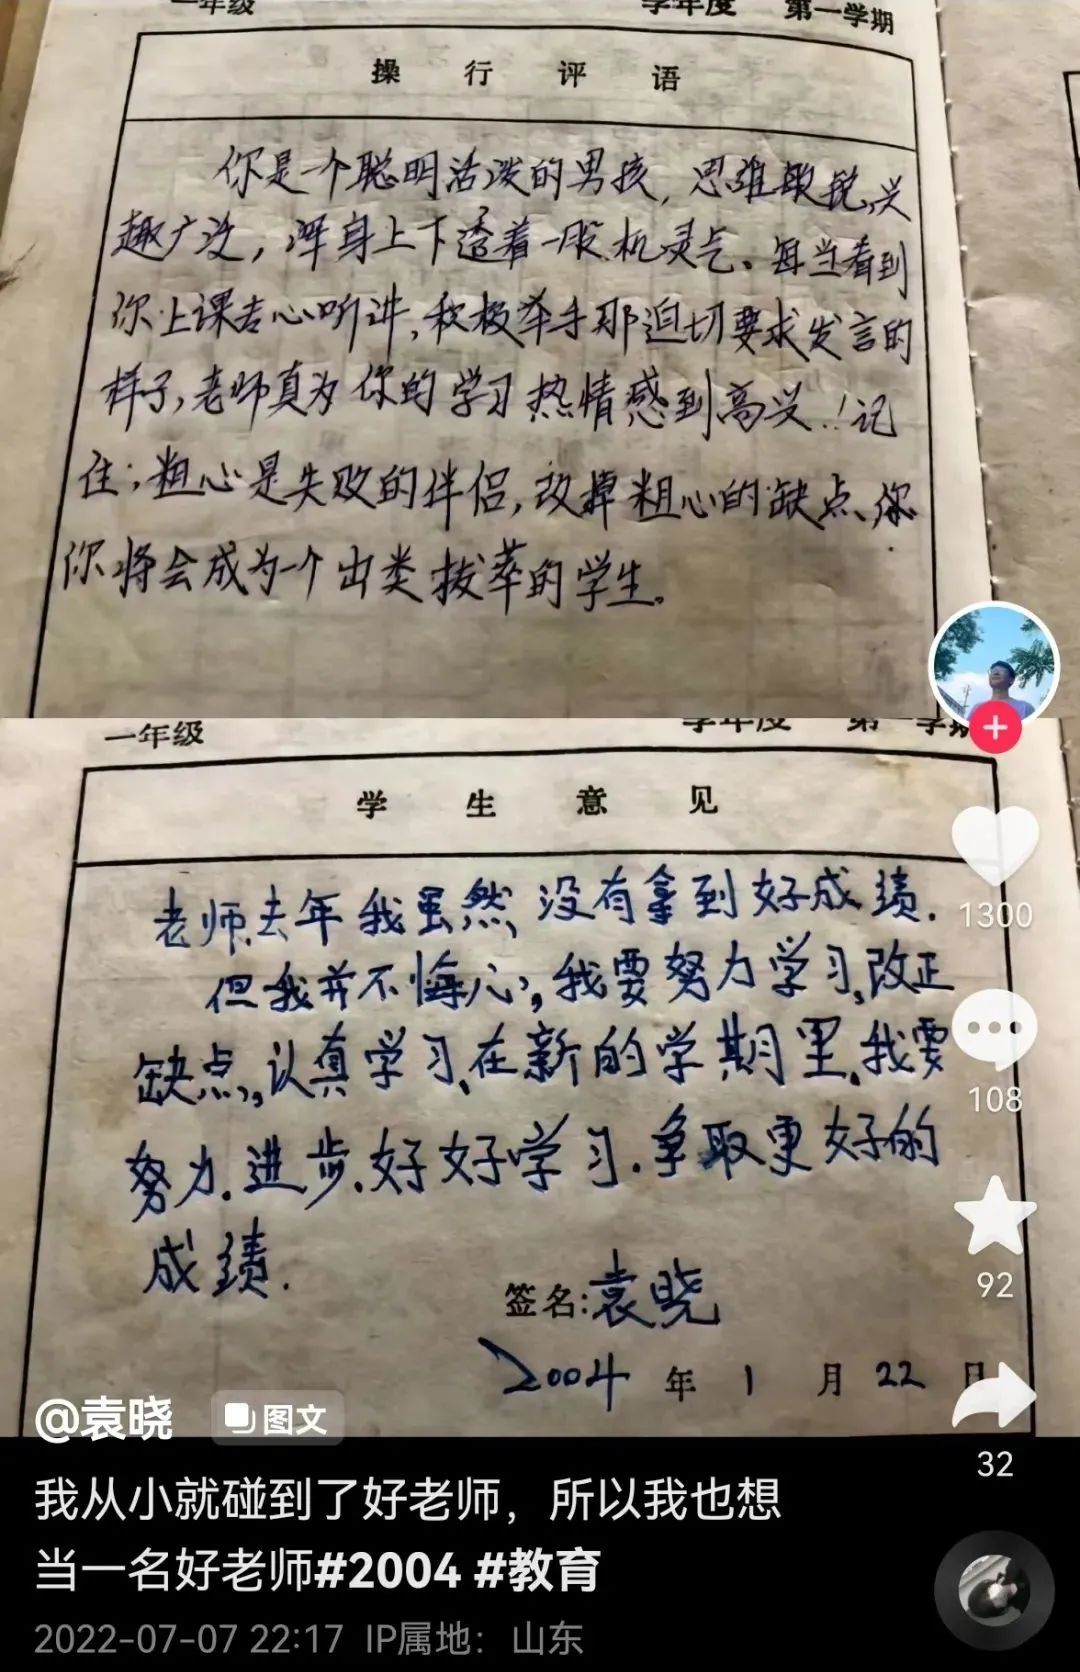 一年级 学年度 第一学期
操行评语
你是一个聪明活泼的男孩,思维敏锐,兴
趣广泛,浑身上下透着一股机灵气。每当看到
你上课专心听讲,积极举手那迫切要求发言的
样子,老师真为你的学习热情感到高兴!记
住:粗心是失败的伴侣,改掉粗心的缺点、你
你将会成为一个出类拔萃的学生。
一年级 学年度 第一学期
学生意见
老师,去年我虽然,没有拿到好成绩.
但我并不悔心,我要努力学习,改正
缺点,认真学习,在新的学期里,我要
努力.进步.好好学习.争取更好的
成绩.
签名:袁晓
2004年1月22日
1300
108
92
32
@袁晓 图文
我从小就碰到了好老师,所以我也想
当一名好老师#2004 #教育
2022-07-07 22:17 IP属地:山东